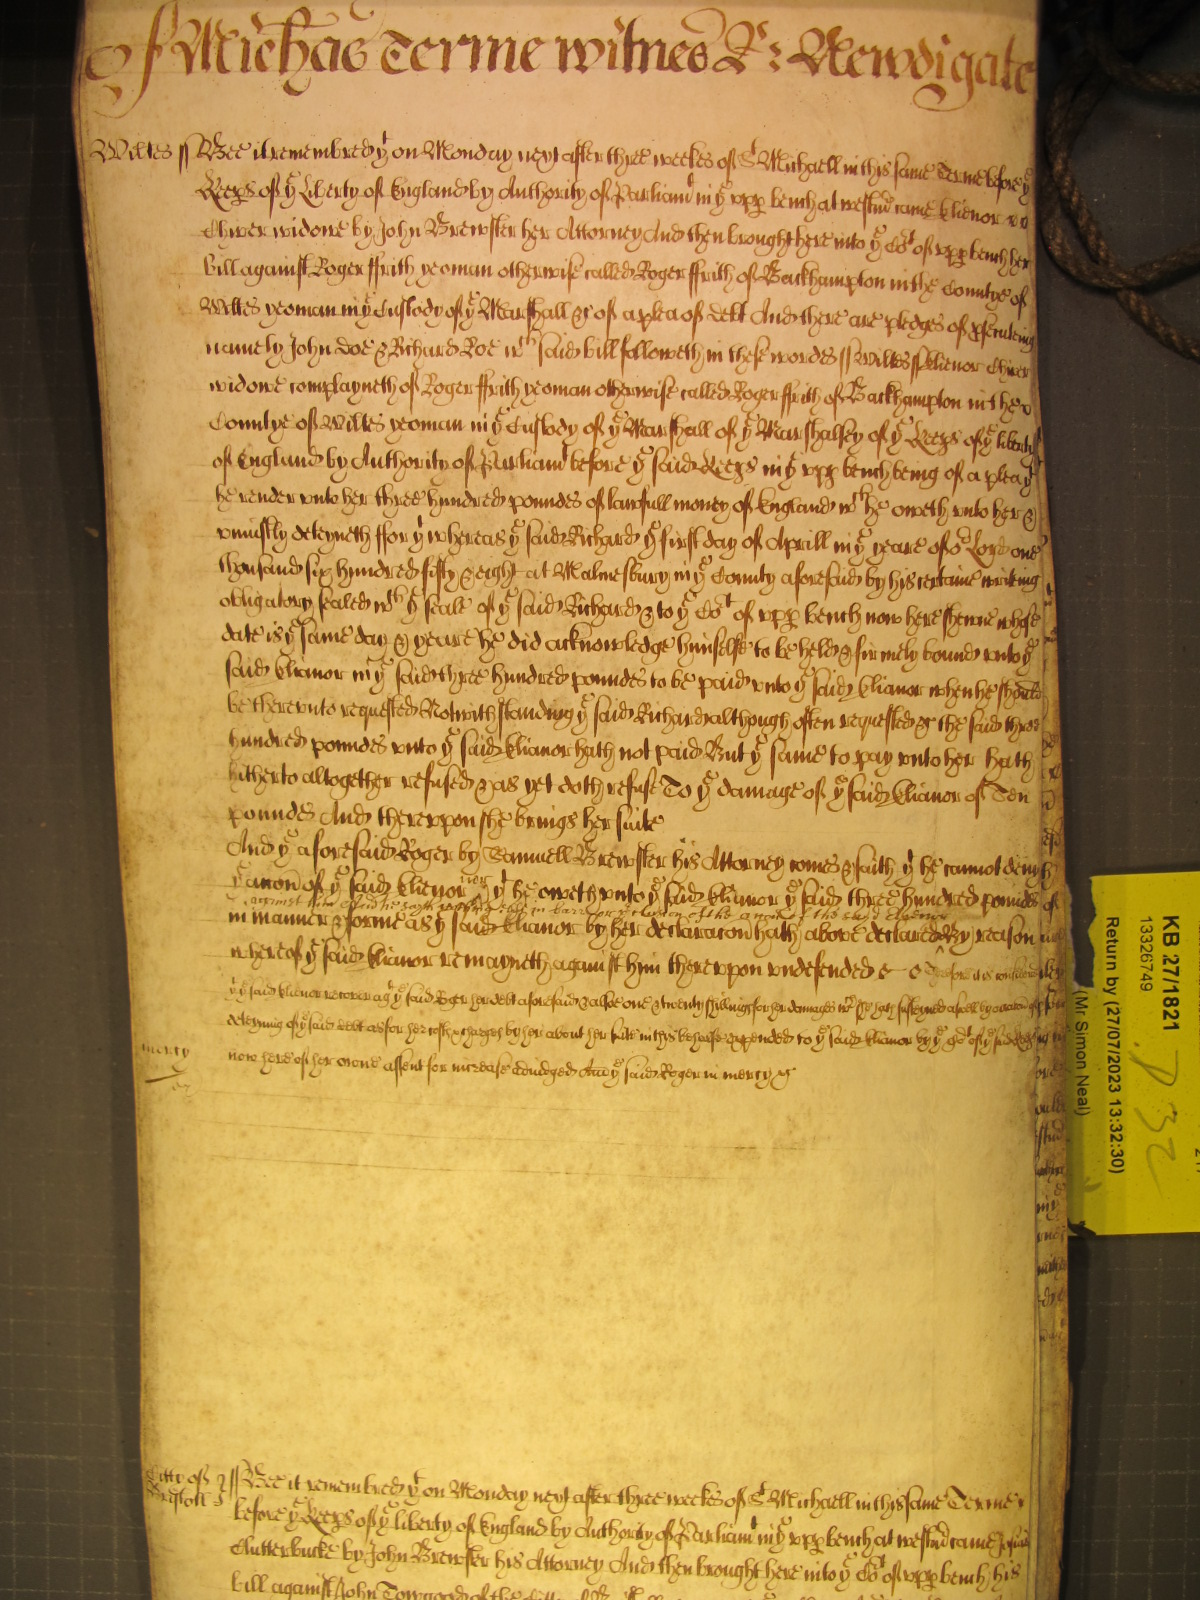 Of Michas Terme witnes R: Newdigate
Wiltes // Bee it remembred yt on Monday next after three weekes of St Michaell in this same Terme before ye
Keeps of ye Liberty of England by Authority of Parliamt in ye vpp bench at westmr came Elienor
Chiver widowe by John Brewster her Attorney And then brought here into ye Cot of vpp bench her
bill against Roger ffrith yeoman otherwise called Roger ffrith of Backhampton in the Countye of
Wiltes yeoman in ye Custody of ye Marshall &c of a plea of debt And there are pledges of psecuteing
namely John Doe & Richard Roe wch said bill followeth in these wordes // Wiltes // Elienor Chiver
widowe complayneth of Roger ffrith yeoman otherwise called Roger ffrith of Backhampton in the
Countye of Wiltes yeoman in ye Custody of ye Marshall of ye Marshalsey of ye Keeps of ye liberty
of England by Authority of Parliamt before ye said Keeps in ye vpp bench being of a plea yt
he render vnto her three hundred poundes of lawfull money of England wch he oweth vnto her &
vniustly deteyneth ffor yt whereas ye said Richard ye first day of Aprill in ye yeare of or Lord one
thousand six hundred fifty & eight at Malmesbury in ye County aforesaid by his certaine writing
obligatory sealed wth ye seale of ye said Richard & to ye Cot of vpp bench now here shewne whose
date is ye same day & yeare he did acknowledge himselfe to be held & firmely bound vnto ye
said Elianor in ye said three hundred poundes to be paid vnto ye said Elianor when he should
be therevnto requested Notwithstanding ye said Richard although often requested &c the said three
hundred poundes vnto ye said Elianor hath not paid But ye same to pay vnto her hath
hitherto altogether refused & as yet doth refuse To ye damage of ye said Elianor of Ten
poundes And therevpon she brings her suite
And ye aforesaid Roger by Samuell Brewster his Attorney comes & saith yt he cannot deny
ye accon of ye said Elienor nor yt he oweth vnto ye said Elianor ye said three hundred poundes
in manner & forme as ye said Elianor by her declaracon hath above declared By reason
whereof ye said Elianor remayneth against him therevpon vndefended &c Therefore it is considered
yt ye said Elianor recover agt ye said Roger her debt aforesaid & alsoe one & twenty shillings for her damages wch she hath susteyned aswell by occacon of ye
deteining of ye said debt as for her costs & charges by her about her suite in this behalfe expended to ye said Elianor by ye Cot of ye said Keeps
mercy
now here of her owne assent for increase adiudged And ye said Roger in mercy &c
Citty of Bristoll // Bee it remembred yt on Monday next after three weekes of St Michaell in this same Terme
before ye Keeps of ye liberty of England by Authority of Parliamt in ye vpp bench at westmr came
Clutterbucke by John Brewster his Attorney And then brought here into ye Cot of vpp bench his
bill against John
KB 27/1821
13326749
Return by (27/07/2023 13:32:30)
(Mr Simon Neal)